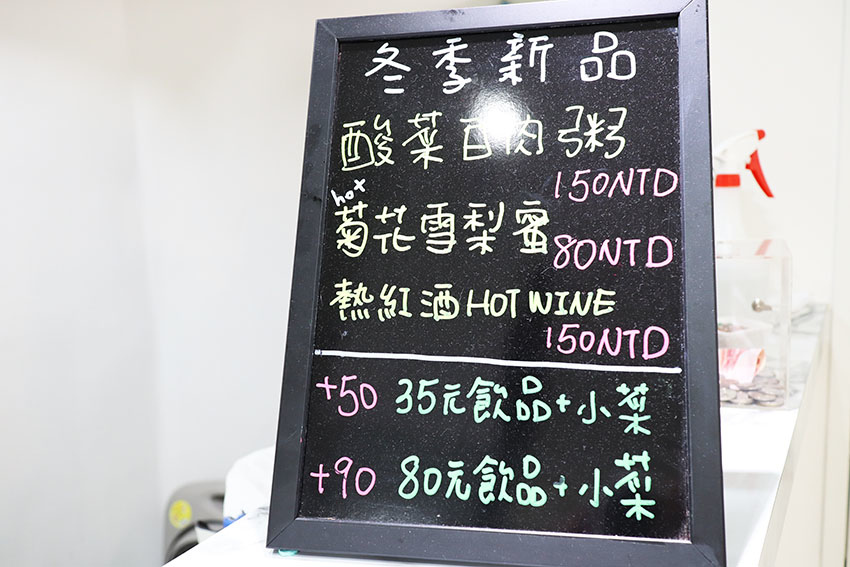 冬季新品
酸菜白肉粥
150NTD
hot
菊花雪梨蜜
80NTD
熱紅酒HOT WINE
150NTD
+50 35元飲品+小菜
+90 80元飲品+小菜